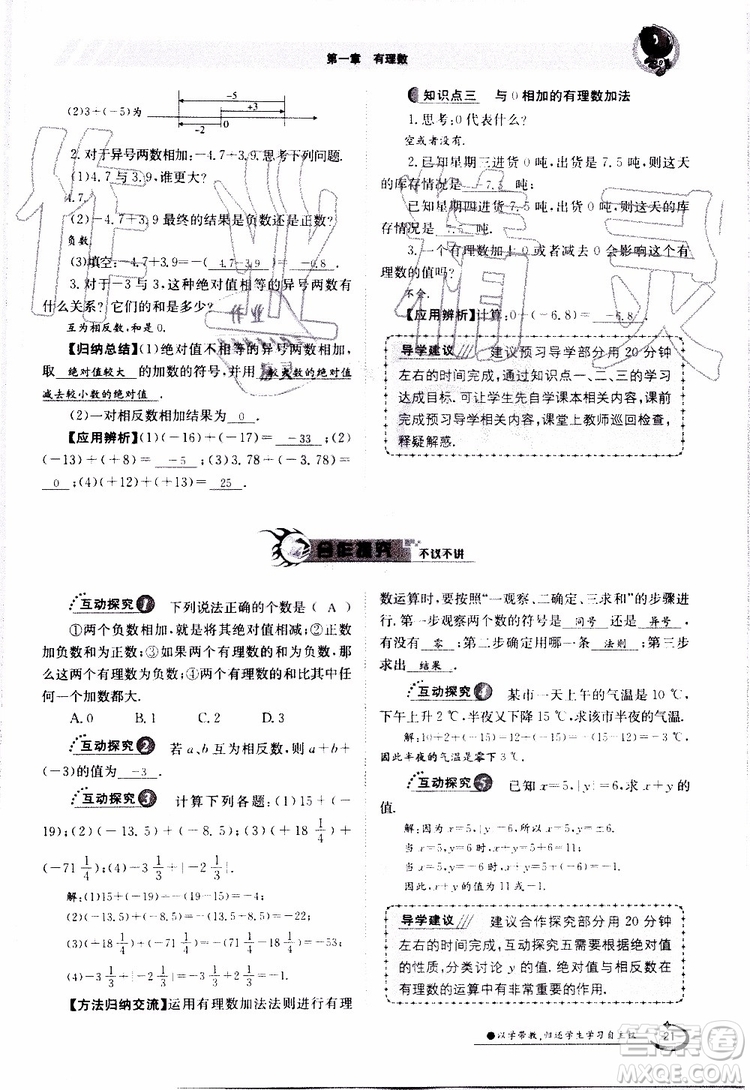 第一章 有理数
(2)3+(-5)为
-5
+3
-2
0
2. 对于异号两数相加:-4.7+3.9,思考下列问题.
(1)4.7与3.9,谁更大?
4.7.
(2)-4.7+3.9最终的结果是负数还是正数?
负数.
(3)填空:-4.7+3.9=-( 4.7-3.9 )= -0.8 .
3. 对于-3与3,这种绝对值相等的异号两数有
什么关系? 它们的和是多少?
互为相反数,和是0.
【归纳总结】(1)绝对值不相等的异号两数相加,
取 绝对值较大 的加数的符号,并用 较大数的绝对值
减去较小数的绝对值 .
(2)一对相反数相加结果为 0 .
【应用辨析】(1)(-16)+(-17)= -33 ;(2)
(-13)+(+8)= -5 ;(3)3.78+(-3.78)=
0 ;(4)(+12)+(+13)= 25 .
知识点三 与0相加的有理数加法
1. 思考:0代表什么?
空或者没有.
2. 已知星期三进货0吨,出货是7.5吨,则这天
的库存情况是 -7.5 吨;
已知星期四进货7.5吨,出货是0吨,则这天库
存情况是
3. 一个有理数加上0或者减去0会影响这个有
理数的值吗?
不会.
【应用辨析】计算:0+(-6.8)= -6.8 .
导学建议 建议预习导学部分用20分钟
左右的时间完成,通过知识点一、二、三的学习
达成目标. 可让学生先自学课本相关内容,课前
完成预习导学相关内容,课堂上教师巡回检查,
释疑解惑.
合作探究 不议不讲
互动探究1 下列说法正确的个数是( A )
①两个负数相加,就是将其绝对值相减;②正数
加负数和为正数;③如果两个有理数的和为负数,
那么这两个有理数都为负数;④两个有理数的和比任
何一个加数都大.
A. 0 B. 1 C. 2 D. 3
互动探究2 若a、b互为相反数,则(a+b)+
(-3)的值为 -3 .
互动探究3 计算下列各题:(1)15+(-
19);(2)(-13.5)+(-8.5);(3)(+18 1/4)+
(-71 1/4);(4)(-3 1/4)+|-3 1/4|.
解:(1)15+(-19)=-(19-15)=-4;
(2)(-13.5)+(-8.5)=-(13.5+8.5)=-22;
(3)(+18 1/4)+(-71 1/4)=-(71 1/4-18 1/4)=-53;
(4)-3 1/4+|-3 1/4|=-3 1/4+3 1/4=0.
【方法归纳交流】运用有理数加法法则进行有理
数运算时,要按照“一观察、二确定、三求和”的步骤进
行. 第一步观察两个数的符号是 同号 还是 异号 ,
有没有 零 ;第二步确定用哪一条 法则 ;第三步
求出 结果 .
互动探究4 某市一天上午的气温是10℃,
下午上升2℃,半夜又下降15℃,求该市半夜的气温.
解:10+2+(-15)=12+(-15)=-3.
因此半夜的气温是零下3℃.
互动探究5 已知x=5,|y|=6,求x+y的
值.
解:因为x=5,|y|=6,所以x=5,y=±6.
当x=5,y=6时,x+y=5+6=11.
当x=5,y=-6时,x+y=5+(-6)=-1.
因此x+y的值为11或-1.
导学建议 建议合作探究部分用20分钟
左右的时间完成,互动探究五需要根据绝对值
的性质,分类讨论y的值. 绝对值与相反数在有
理数的运算中有非常重要的作用.
●以学带教,归还学生学习自主权
21